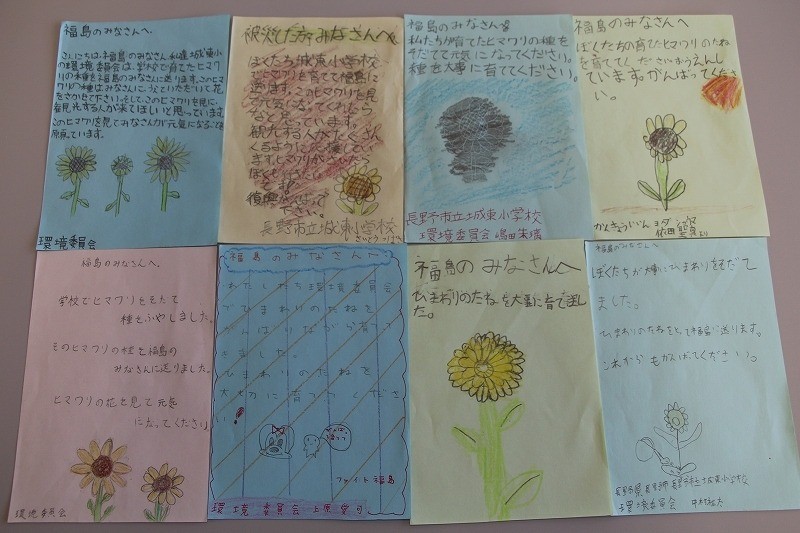 福島のみなさんへ。
こんにちは、福島のみなさん。私達城東小
の環境委員会は、学校で育てたヒマワ
リの種を福島のみなさんに送ります。このヒマ
ワリの種はみなさんに、うえていただいて花
をさかせて下さい。そしてこのヒマワリを見に、
観光する人が来てほしいと思っています。
このヒマワリを見てみなさんが元気になることを
願っています。
環境委員会
被災した所のみなさんへ
ぼくたち城東小学校
でヒマワリを育てて福島に
送ります。このヒマワリを見
て元気になってくれたら
なと思っています。
観光する人がたくさん
くるように
ます。ヒマワリがさいたら
ぼくも行きたい
です。
復興がんばって
下さい。
長野市立城東小学校
福島のみなさま
私たちが育てたヒマワリの種を
そだてて元気になってください。
種を大事に育ててください。
長野市立城東小学校
環境委員会 嶋田朱璃
福島のみなさんへ
ぼくたちの育てたヒマワリのたね
を育ててください。おうえんし
ています。がんばってくださ
い。
かんきょういいん
福島のみなさんへ。
学校でヒマワリをそだて
種をふやしました。
そのヒマワリの種を福島の
みなさんに送りました。
ヒマワリの花を見て元気
になってください。
環境委員会
福島のみなさんへ
わたしたち環境委員会
でひまわりのたねを
がんばりながら育て
てきました。
ひまわりのたねを
大切に育ててくださ
い。
がんばって
ファイト福島
環境委員会 上原
福島のみなさんへ
ひまわりのたねを大事に育てました。
福島のみなさんへ
ぼくたちが大事にひまわりをそだて
ました。
ひまわりのたねをとって福島に送ります。
これからもがんばってください。
長野県長野市 長野市立城東小学校
環境委員会 中村